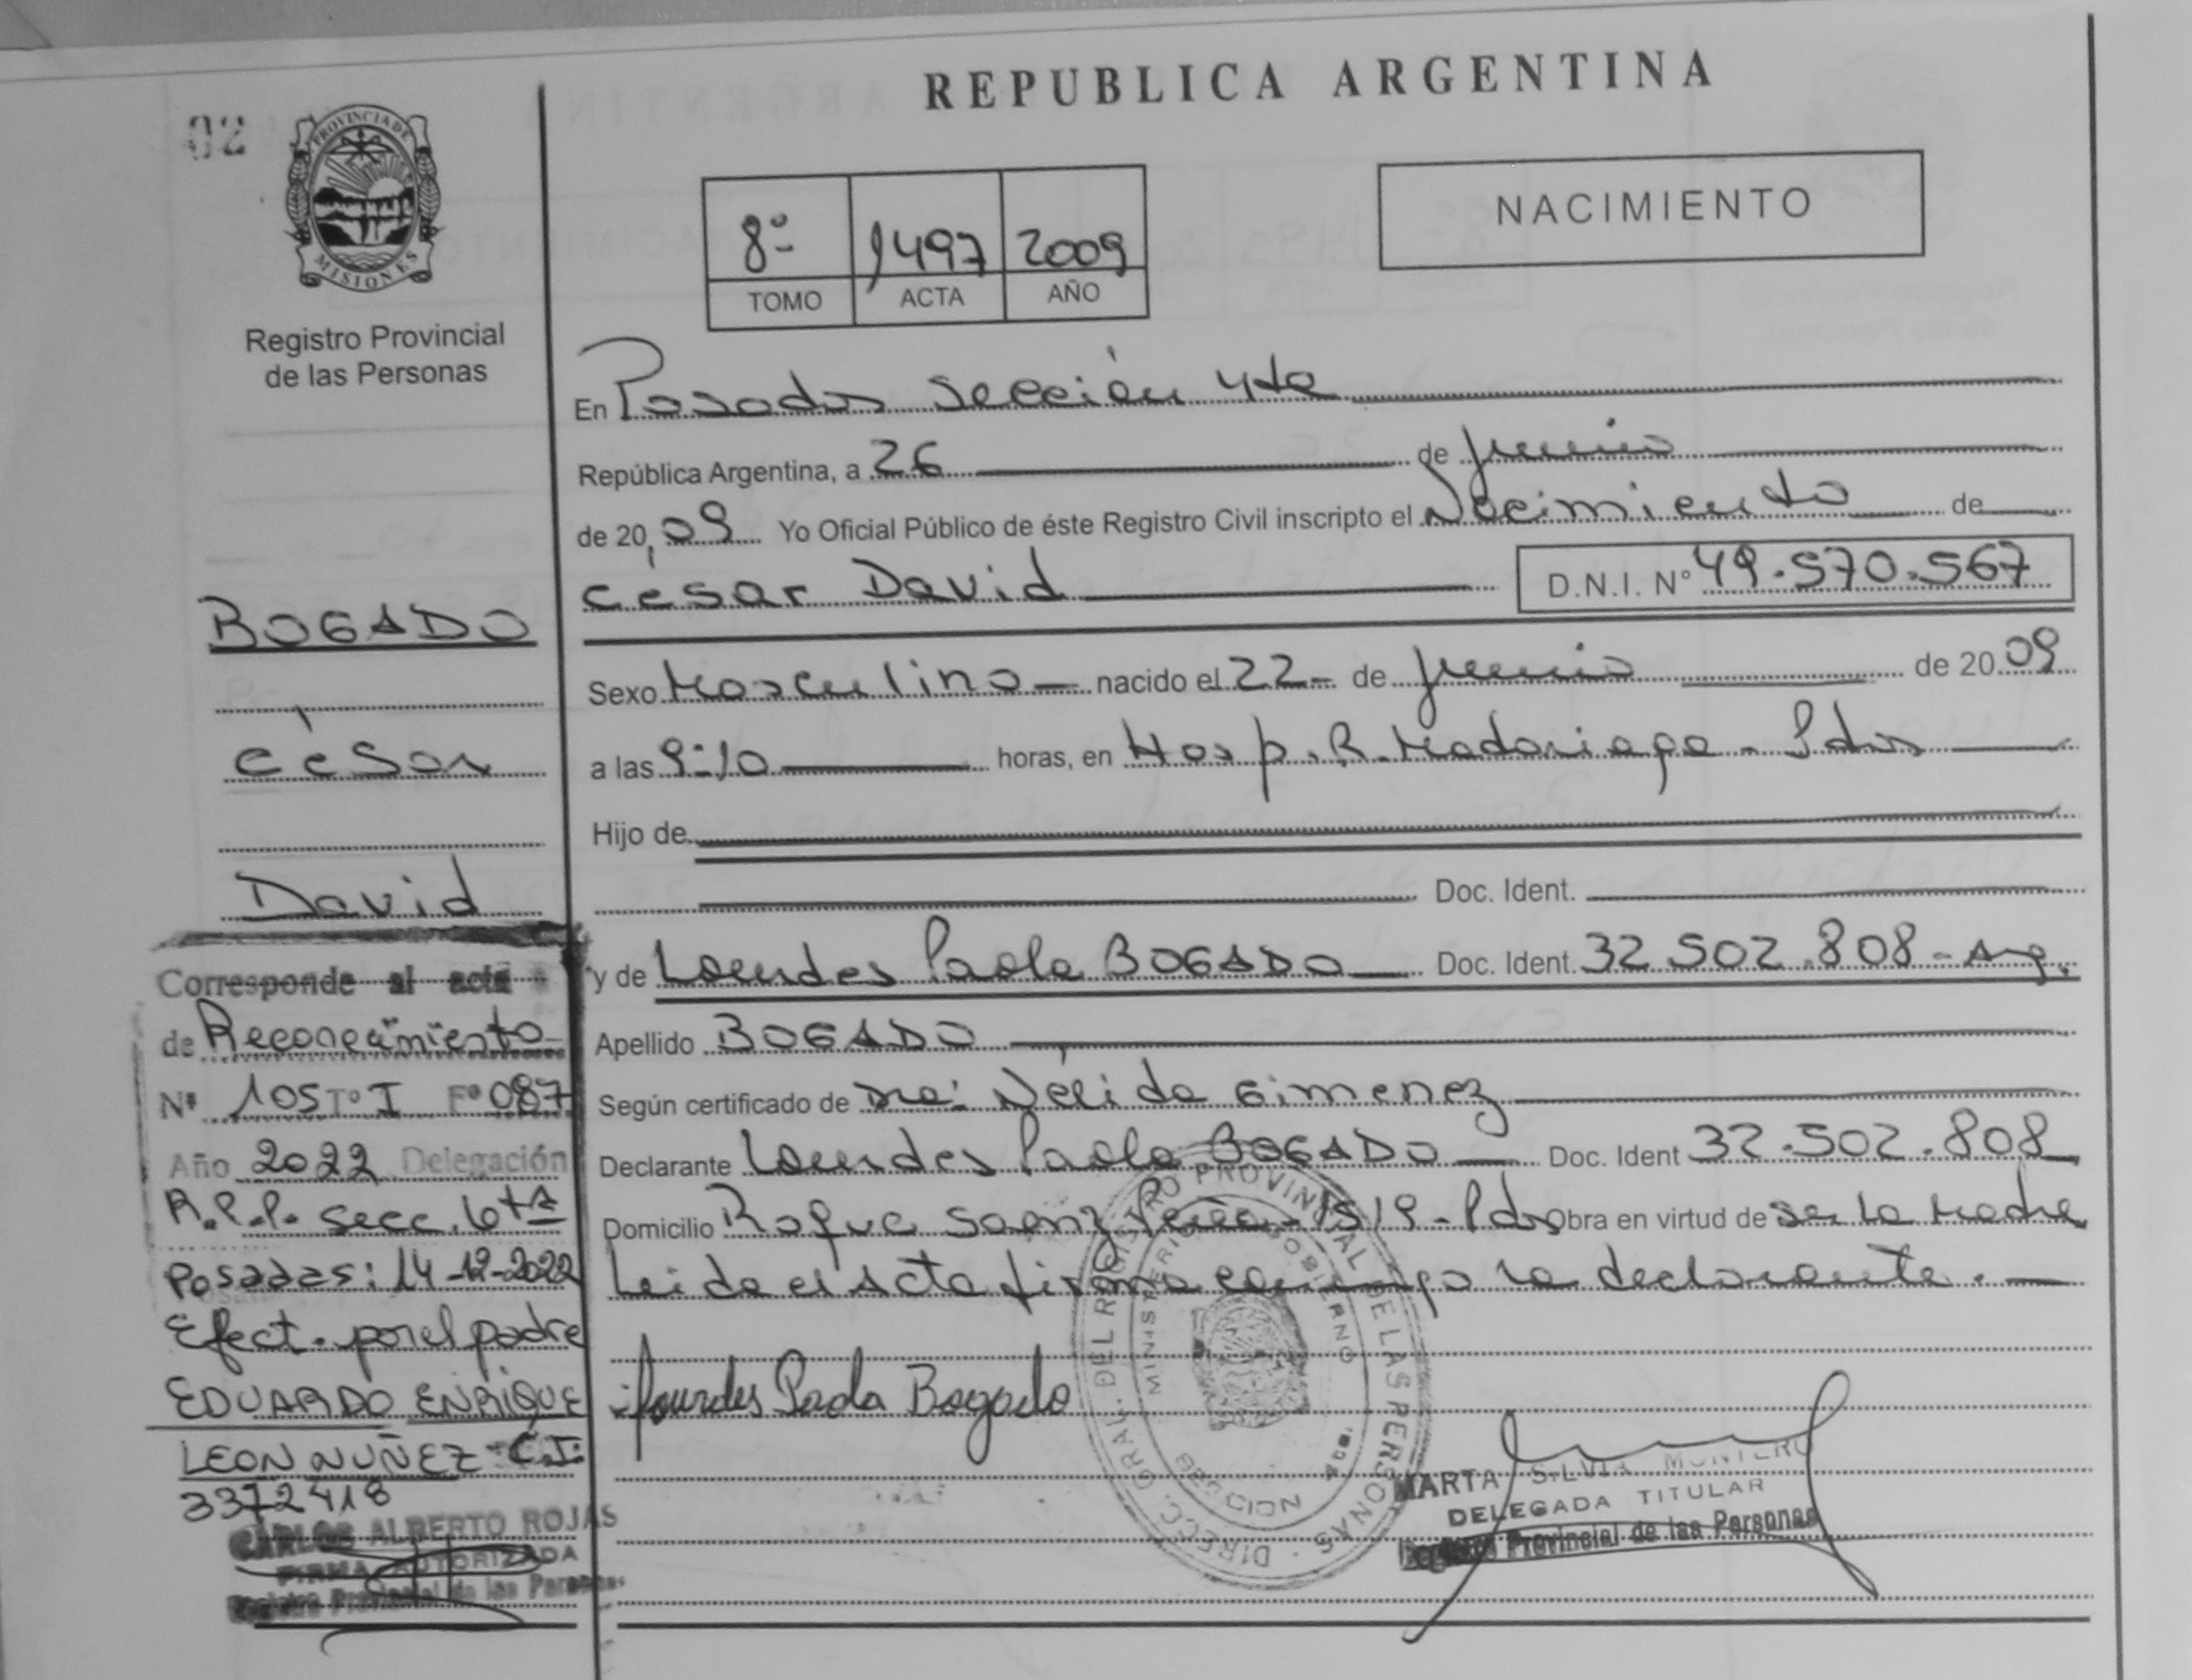 REPUBLICA ARGENTINA
02
PROVINCIA DE
MISIONES
Registro Provincial
de las Personas
8º 1497 2009
TOMO ACTA AÑO
NACIMIENTO
En Posadas Sección 4ta
República Argentina, a 26 de junio
de 20 09 Yo Oficial Público de éste Registro Civil inscripto el Nacimiento de
César David D.N.I. Nº 49.570.567
Sexo Masculino nacido el 22 de junio de 20 09
a las 9:10 horas, en Hosp. R. Madariaga - Pdas
Hijo de
Doc. Ident.
y de Lourdes Paola BOGADO Doc. Ident. 32.502.808 - Arg.
Apellido BOGADO
Según certificado de Dra: Nélida Gimenez
Declarante Lourdes Paola BOGADO Doc. Ident 32.502.808
Domicilio Roque Saenz Peña - 1519 - Pdas Obra en virtud de ser la madre
Leida el Acta firma conmigo la declarante.
Lourdes Paola Bogado
DIRECC. GRAL. DEL REGISTRO PROVINCIAL DE LAS PERSONAS
MINISTERIO GOBIERNO
MARTA SILVIA MONTERO
DELEGADA TITULAR
Registro Provincial de las Personas
BOGADO
César
David
Corresponde al acta
de Reconocimiento
Nº 105 Tº I Fº 087
Año 2022 Delegación
R.P.P. Secc. 6ta
Posadas: 14-12-2022
Efect. por el padre
EDUARDO ENRIQUE
LEON NUÑEZ - C.I:
3372418
CARLOS ALBERTO ROJAS
FIRMA AUTORIZADA
Registro Provincial de las Personas